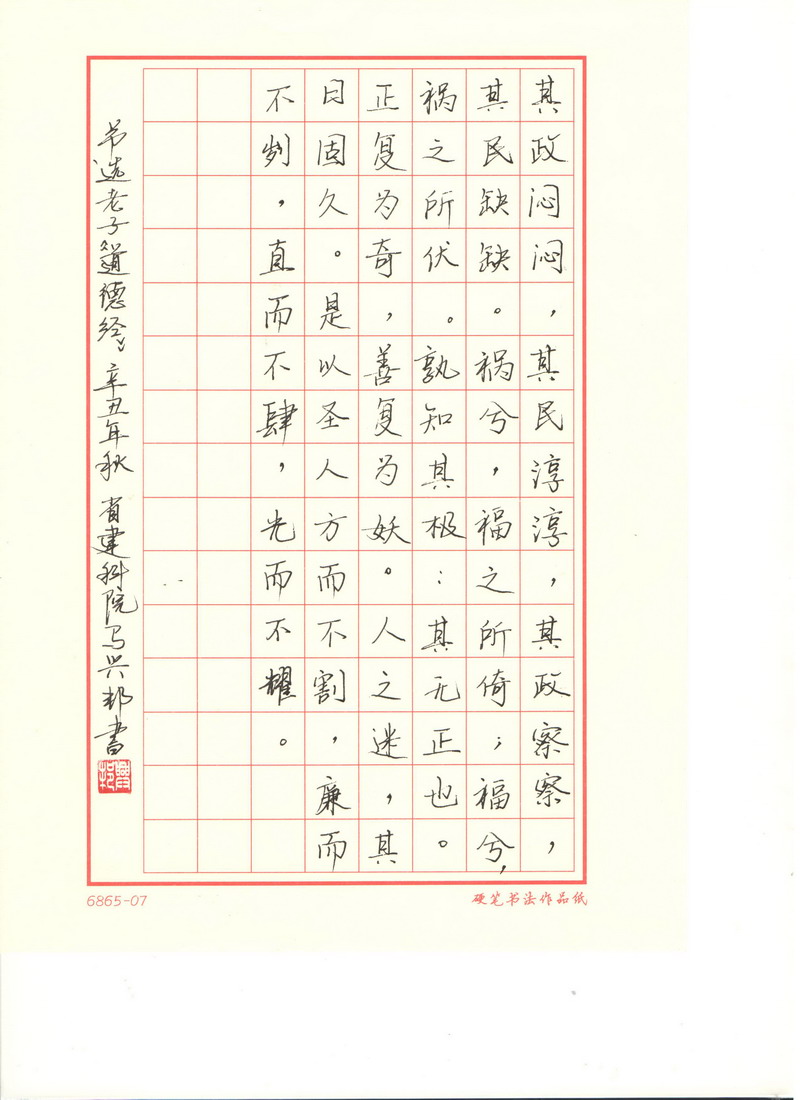 其政闷闷，其民淳淳，其政察察，
其民缺缺。祸兮，福之所倚；福兮，
祸之所伏。孰知其极：其无正也。
正复为奇，善复为妖。人之迷，其
日固久。是以圣人方而不割，廉而
不刿，直而不肆，光而不耀。
节选老子《道德经》 辛丑年秋 省建科院马兴邦书
兴邦
6865-07
硬笔书法作品纸